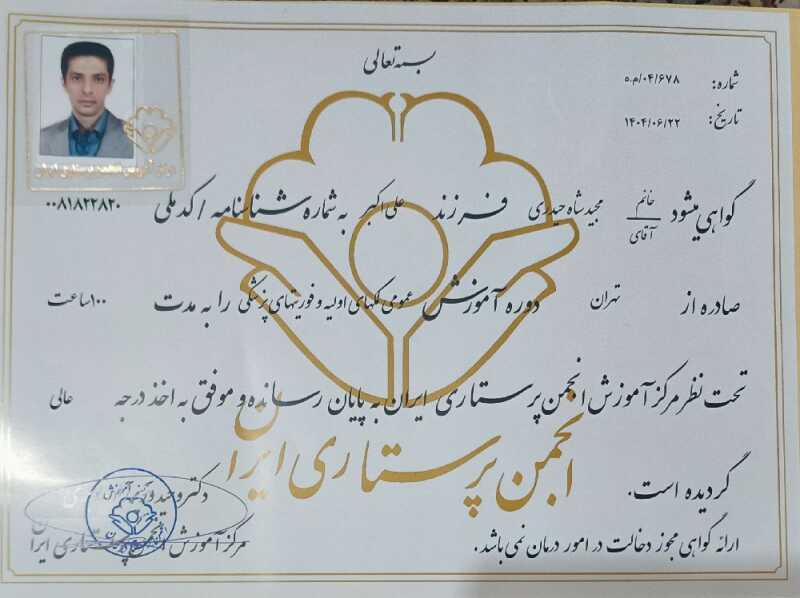 بسمه تعالی
شماره: ۰۴/۶۷۸/م.ه
تاریخ: ۱۴۰۴/۰۶/۲۲
گواهی میشود خانم / آقای مجید شاه حیدری فرزند علی اکبر به شماره شناسنامه / کد ملی ۰۰۸۱۸۲۲۸۲۰
صادره از تهران دوره آموزش عمومی کمکهای اولیه و فوریتهای پزشکی را به مدت ۱۰۰ ساعت
تحت نظر مرکز آموزش انجمن پرستاری ایران به پایان رسانده و موفق به اخذ درجه عالی
گردیده است.
انجمن پرستاری ایران
ارائه گواهی مجوز دخالت در امور درمان نمی باشد.
دکتر وحید
مرکز آموزش انجمن پرستاری ایران